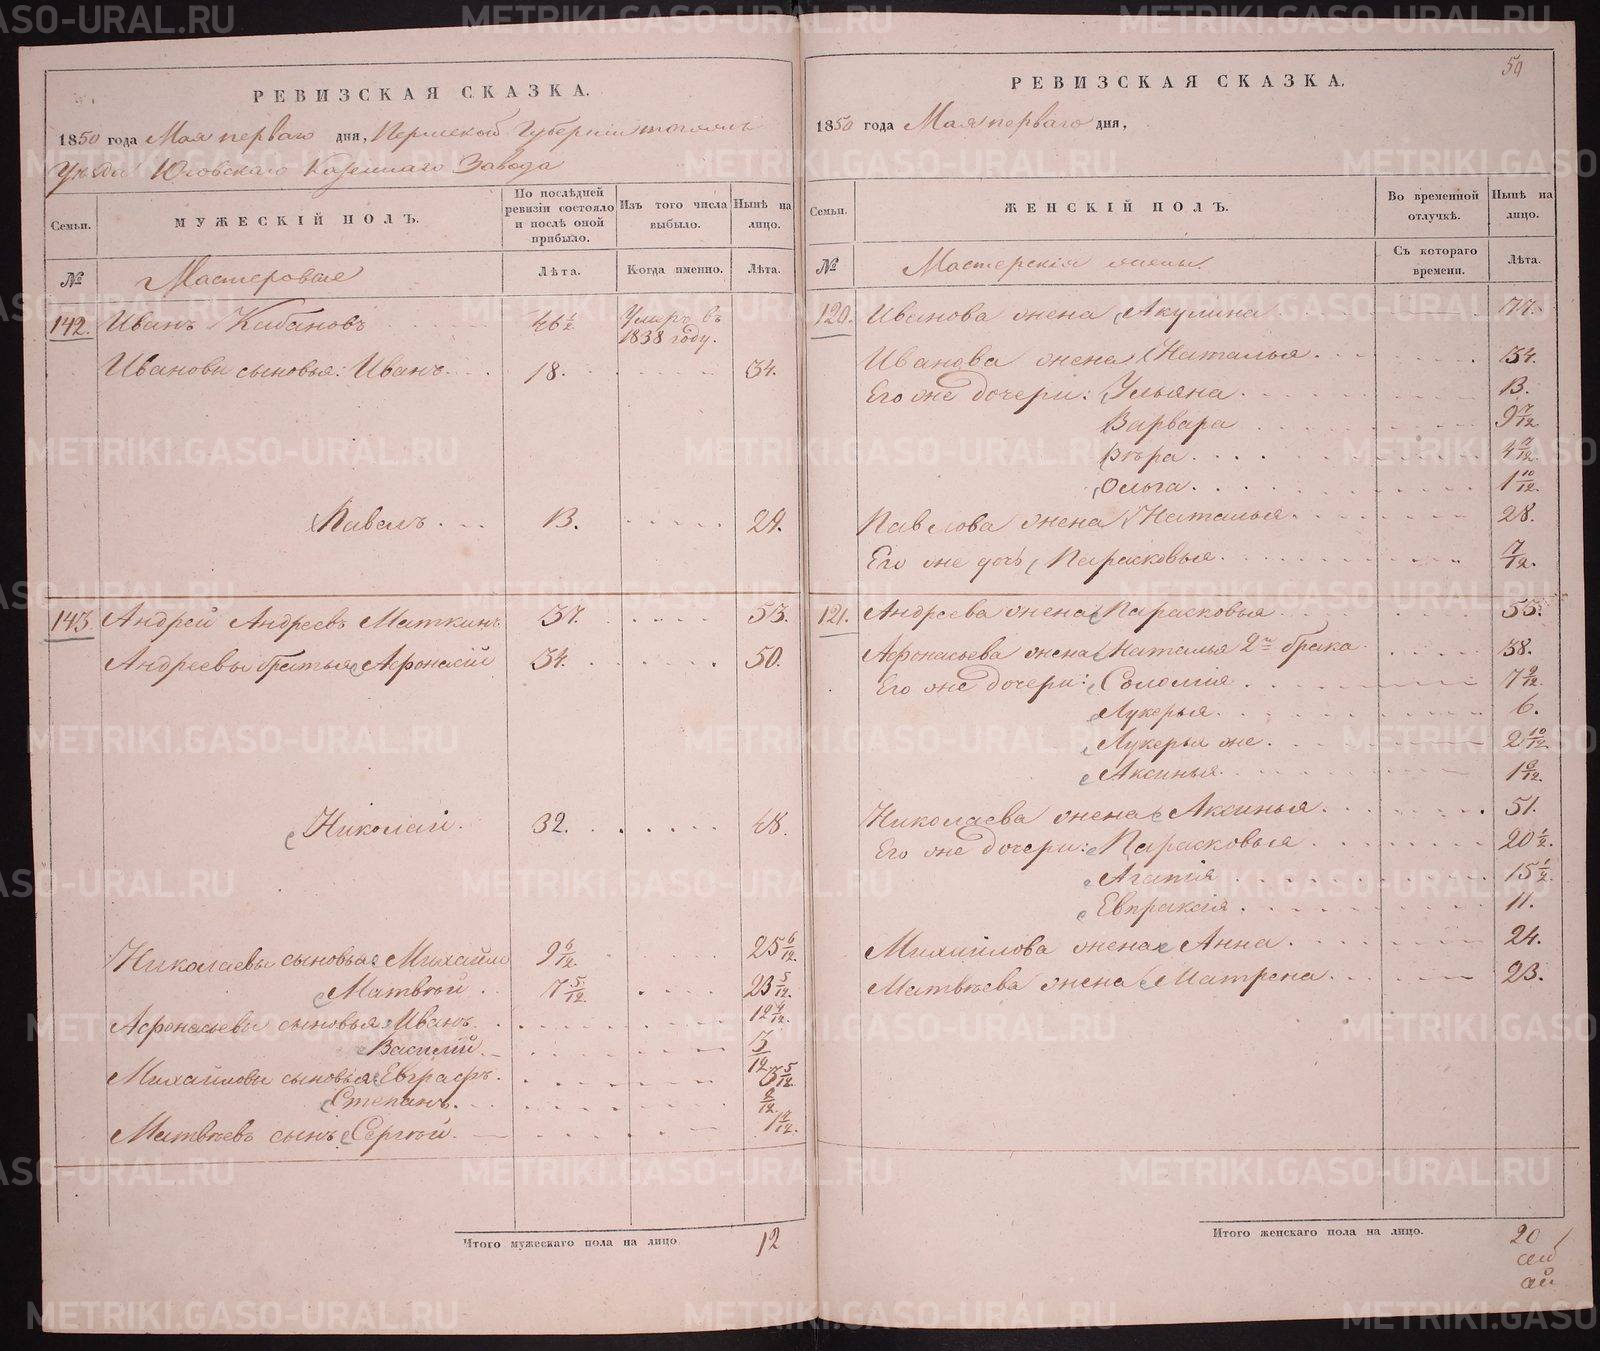 РЕВИЗСКАЯ СКАЗКА.
1850 года Мая перваго дня, Пермской Губернiи тогожъ
Уѣзда Юговскаго Казеннаго Завода
Семьи.
МУЖЕСКIЙ ПОЛЪ.
По послѣдней ревизiи состояло и послѣ оной прибыло.
Изъ того числа выбыло.
Нынѣ на лицо.
№
Мастеровые
Лѣта.
Когда именно.
Лѣта.
142. Иванъ Кабановъ 46 1/2 Умеръ въ 1838 году.
Ивановы сыновья: Иванъ 18. 34.
Павелъ 13. 29.
143. Андрей Андреевъ Маткинъ 37. 53.
Андреевы братья Афонасiй 34. 50.
Николай. 32. 48.
Николаевы сыновья Михайло 9 6/12. 25 6/12.
Матвѣй 7 5/12. 23 5/12.
Афонасьевы сыновья Иванъ. 12 4/12.
Василiй. 3/12
Михайловы сыновья Евграфъ. 3 5/12.
Степанъ. 2/12.
Матвѣевъ сынъ Сергѣй. 1 2/12.
Итого мужескаго пола на лицо 12
59
РЕВИЗСКАЯ СКАЗКА.
1850 года Мая перваго дня,
Семьи.
ЖЕНСКIЙ ПОЛЪ.
Во временной отлучкѣ.
Нынѣ на лицо.
№
Мастерскiя жены.
Съ котораго времени.
Лѣта.
120. Иванова жена Акулина 77.
Иванова жена Наталья 34.
Его же дочери: Ульяна 13.
Варвара 9 7/12
Вѣра 4 7/12.
Ольга 1 10/12.
Павлова жена Наталья 28.
Его же дочь Парасковья 7/12.
121. Андреева жена Парасковья 55.
Афонасьева жена Наталья 2го брака 38.
Его же дочери: Соломiя 7 9/12.
Лукерья 6.
Лукерья же 2 10/12.
Аксинья 1 6/12.
Николаева жена Аксинья 51.
Его же дочери: Парасковья 20 1/2.
Агапiя 15 1/2.
Евпраксiя 11.
Михайлова жена Анна 24.
Матвѣева жена Матрена 23.
Итого женскаго пола на лицо. 20
METRIKI.GASO-URAL.RU